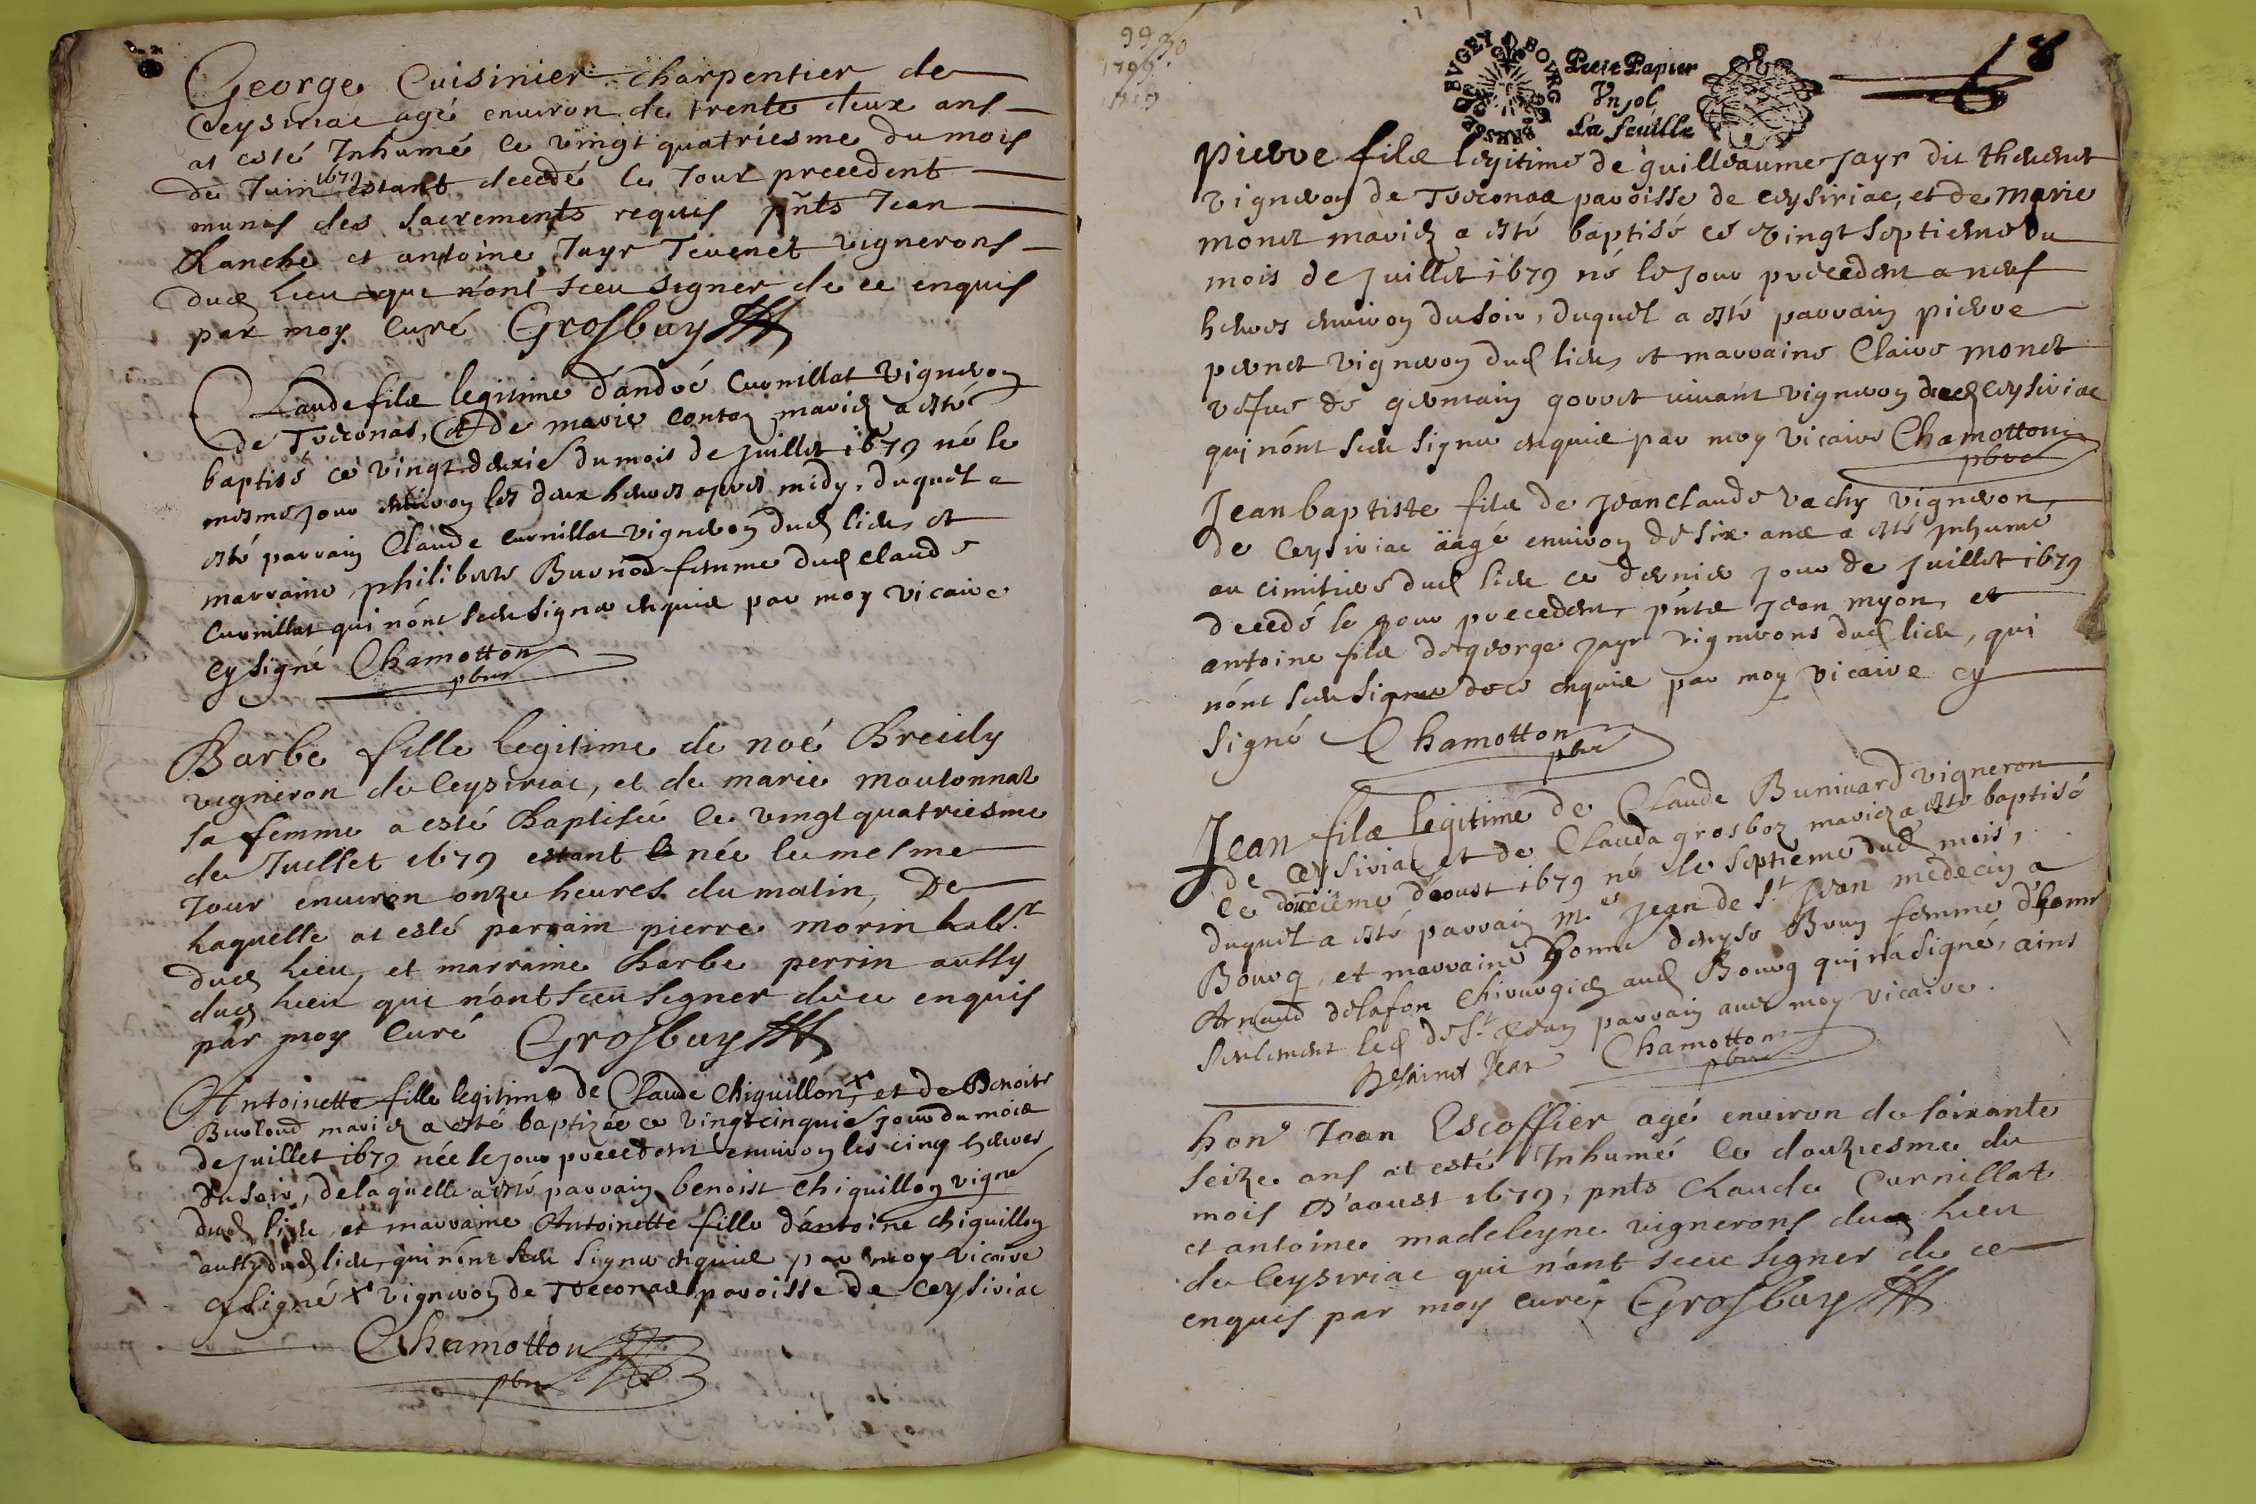 George Cuisinier charpentier de
Ceysiriac agé enuiron de trente deux ans
at esté Inhumé ce vingt quatriesme du mois
de Juin 1679 estant decedé le Jour precedent
munes des sacrements requis pnts Jean
et antoine Jayr Teuenet vignerons
dud lieu que n'ont sceu signer de ce enquis
par moy Curé Grosbuy
Claude filz legitime d'andré Curnillat vigneron
de Treconas, et de marie contoz mariez a esté
baptisé ce vingt deuxie du mois de juillet 1679 né le
mesme jour enuiron les deux heures apres midy, duquel a
esté parrain Claude curnillat vigneron dud lieu, et
marraine philiberte Burnod femme dud claude
Curnillat qui n'ont sceu signer enquis par moy vicaire
cy signé Chamotton
pbre
Barbe fille legitime de noé Breidy
vigneron de Ceysiriac, et de marie moutonnat
sa femme a esté Baptisée ce vingt quatriesme
de Juillet 1679 estant née le mesme
Jour enuiron onze heures du matin, De
Laquelle at esté parrain pierre morin habt
dud lieu, et marraine Barbe perrin aussy
dud lieu que n'ont sceu signer de ce enquis
par moy Curé Grosbuy
Antoinette fille legitime de Claude Chiquillon x et de Benoite
Burloud mariez a esté baptizée ce vingt cinquie jour du mois
de juillet 1679 née le jour precedent enuiron les cinq heures
du soir, de laquelle a esté parrain benoist chiquillon vign
dud lieu, et marraine Antoinette fille d'antoine chiquillon
aussy dud lieu, qui n'ont sceu signer enquis par moy vicaire
cy signé x vigneron de Treconas paroisse de Ceysiriac
Chamotton
pbre
99
BOURG BRESSE BUGEY
Petit Papier
Un sol
La feuille
18
pierre filz legitime de guilleaume Jayr dit thevenet
vigneron de Treconas paroisse de ceysiriac, et de marie
monet mariez a esté baptisé ce vingt septiesme du
mois de juillet 1679 né le jour precedent a neuf
heures enuiron du soir, duquel a esté parrain pierre
pernet vigneron dud lieu, et marraine Claire monet
vefue de germain gorret viuant vigneron dud ceysiriac
qui n'ont sceu signer enquis par moy vicaire Chamotton
pbre
Jean baptiste filz de Jean claude vachy vigneron
de Ceysiriac aagé enuiron de six ans a esté Inhumé
au cimitiere dud lieu ce dernier jour de juillet 1679
decedé le jour precedent, pnts Jean myon, et
antoine filz de george jayr vignerons dud lieu, qui
n'ont sceu signer de ce enquis par moy vicaire cy
signé Chamotton
pbre
Jean filz legitime de Claude Buniuard vigneron
de Ceysiriac et de Clauda grosboz mariez a esté baptisé
ce douzieme d'aoust 1679 né le septieme dud mois,
duquel a esté parrain Mr Jean de St Jean medecin a
Bourg, et marraine honne denyse Brun femme d'honne
Arnaud delafon Chirurgien aud Bourg qui n'a signé, ains
seulement led de St Jean parrain auec moy vicaire.
Desainct Jean Chamotton
pbre
hone Jean Escoffier agé enuiron de soixante
seize ans at esté Inhumé ce douziesme du
mois D'aoust 1679, pnts Claude Curnillat
et antoine madeleyne vignerons dud lieu
de Ceysiriac qui n'ont sceu signer de ce
enquis par moy curé Grosbuy